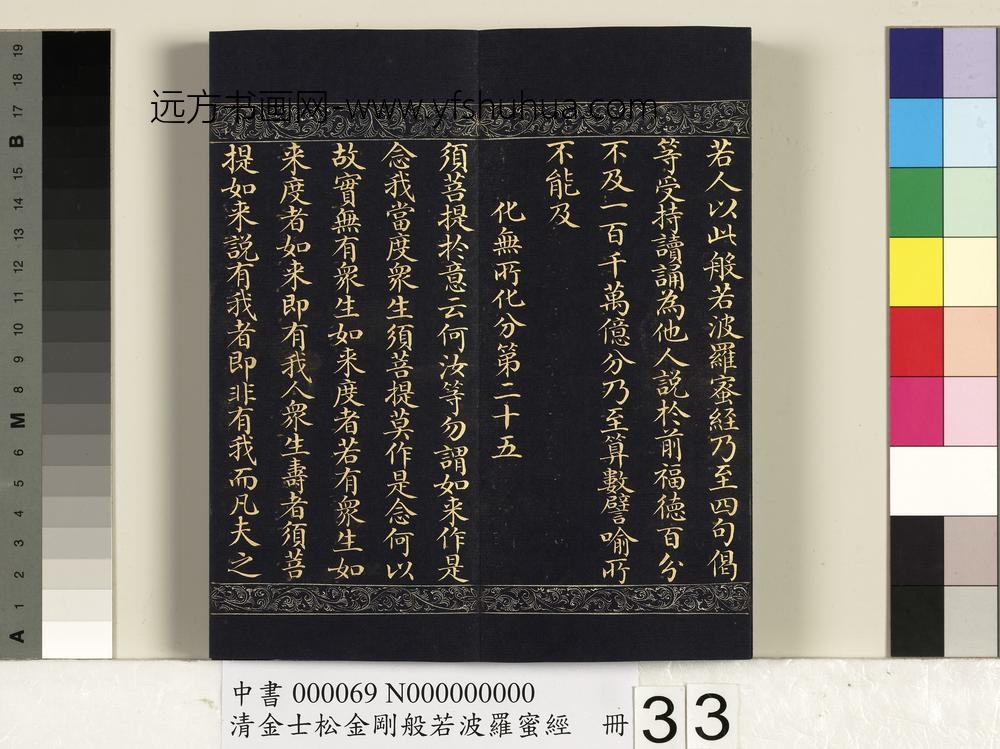 远方书画网-www.yfshuhua.com
若人以此般若波羅蜜經乃至四句偈
等受持讀誦為他人説於前福德百分
不及一百千萬億分乃至算數譬喻所
不能及
化無所化分第二十五
須菩提於意云何汝等勿謂如来作是
念我當度衆生須菩提莫作是念何以
故實無有衆生如来度者若有衆生如
来度者如来即有我人衆生壽者須菩
提如来説有我者即非有我而凡夫之
中書 000069 N000000000
清金士松金剛般若波羅蜜經 冊
33
19
18
17
B
15
14
13
12
11
10
9
8
M
6
5
4
3
2
1
A